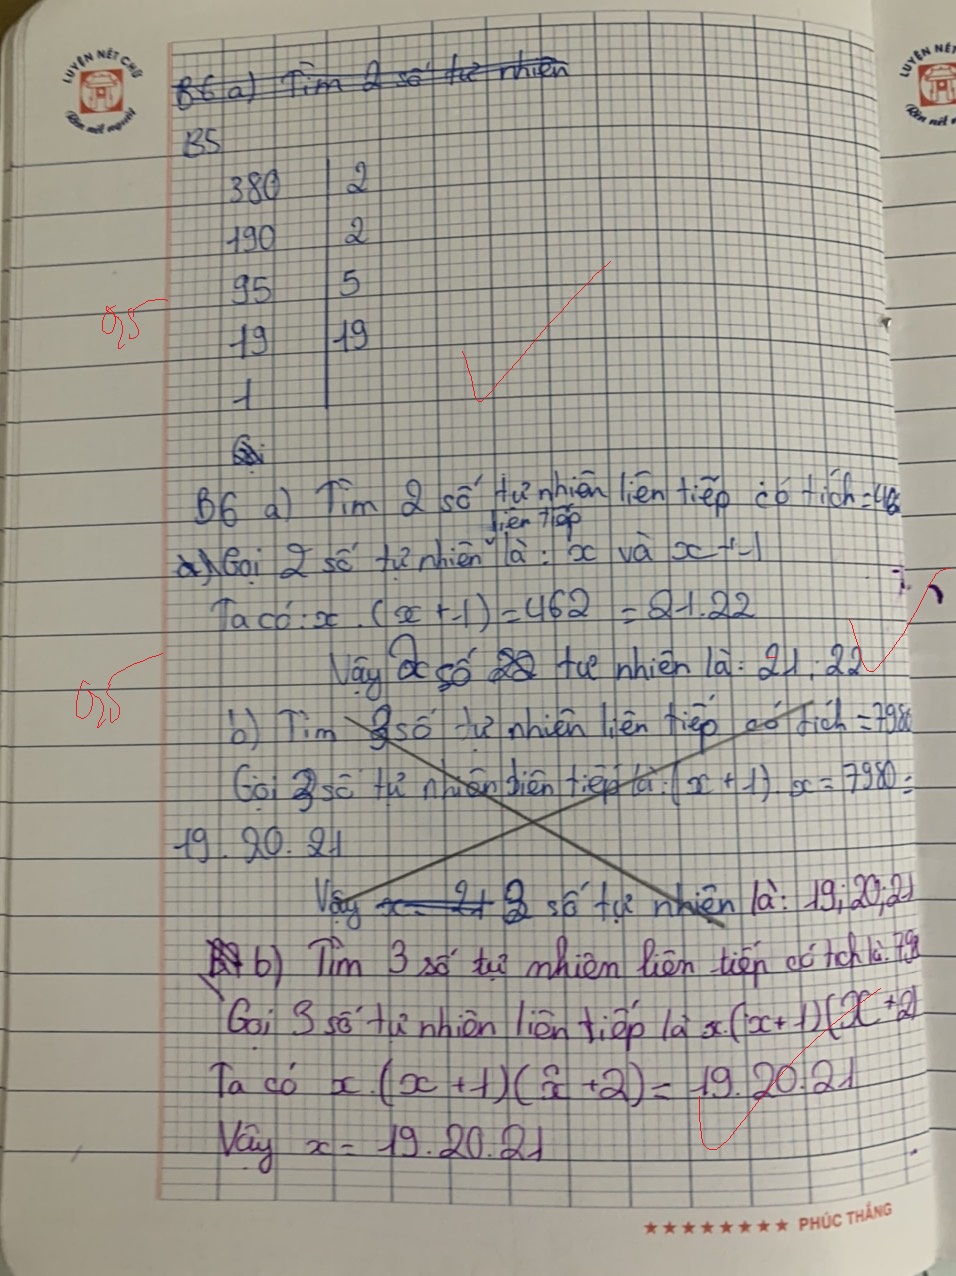 LUYỆN NÉT CHỮ
Rèn nết người
LUYỆN NÉT
Rèn nết
B6 a) Tìm 2 số tự nhiên
B5
380 | 2
190 | 2
95 | 5
0,5
19 | 19
1
B6 a) Tìm 2 số tự nhiên liên tiếp có tích = 46
liên tiếp
a) Gọi 2 số tự nhiên là: x và x + 1
Ta có: x . (x + 1) = 462 = 21.22
Vậy 2 số tự nhiên là: 21; 22
b) Tìm 3 số tự nhiên liên tiếp có tích = 7980
Gọi 3 số tự nhiên liên tiếp là: (x + 1) x = 7980 =
19. 20. 21
Vậy x = 21 3 số tự nhiên là: 19; 20; 21
b) Tìm 3 số tự nhiên liên tiếp có tch là: 798
Gọi 3 số tự nhiên liên tiếp là x.(x+1)(x+2)
Ta có x.(x+1)(x+2) = 19.20.21
Vậy x = 19.20.21
★★★★★★★★ PHÚC THẮNG